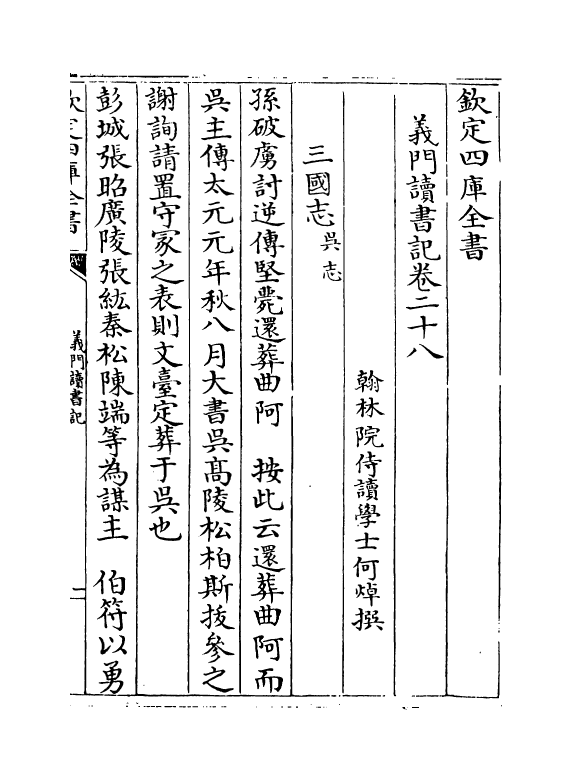 欽定四庫全書
義門讀書記卷二十八
翰林院侍讀學士何焯撰
三國志吳志
孫破虜討逆傳堅薨還葬曲阿　按此云還葬曲阿而
吳主傳太元元年秋八月大書吳髙陵松柏斯拔參之
謝詢請置守冢之表則文臺定葬于吳也
彭城張昭廣陵張紘秦松陳端等為謀主　伯符以勇
欽定四庫全書
義門讀書記
一